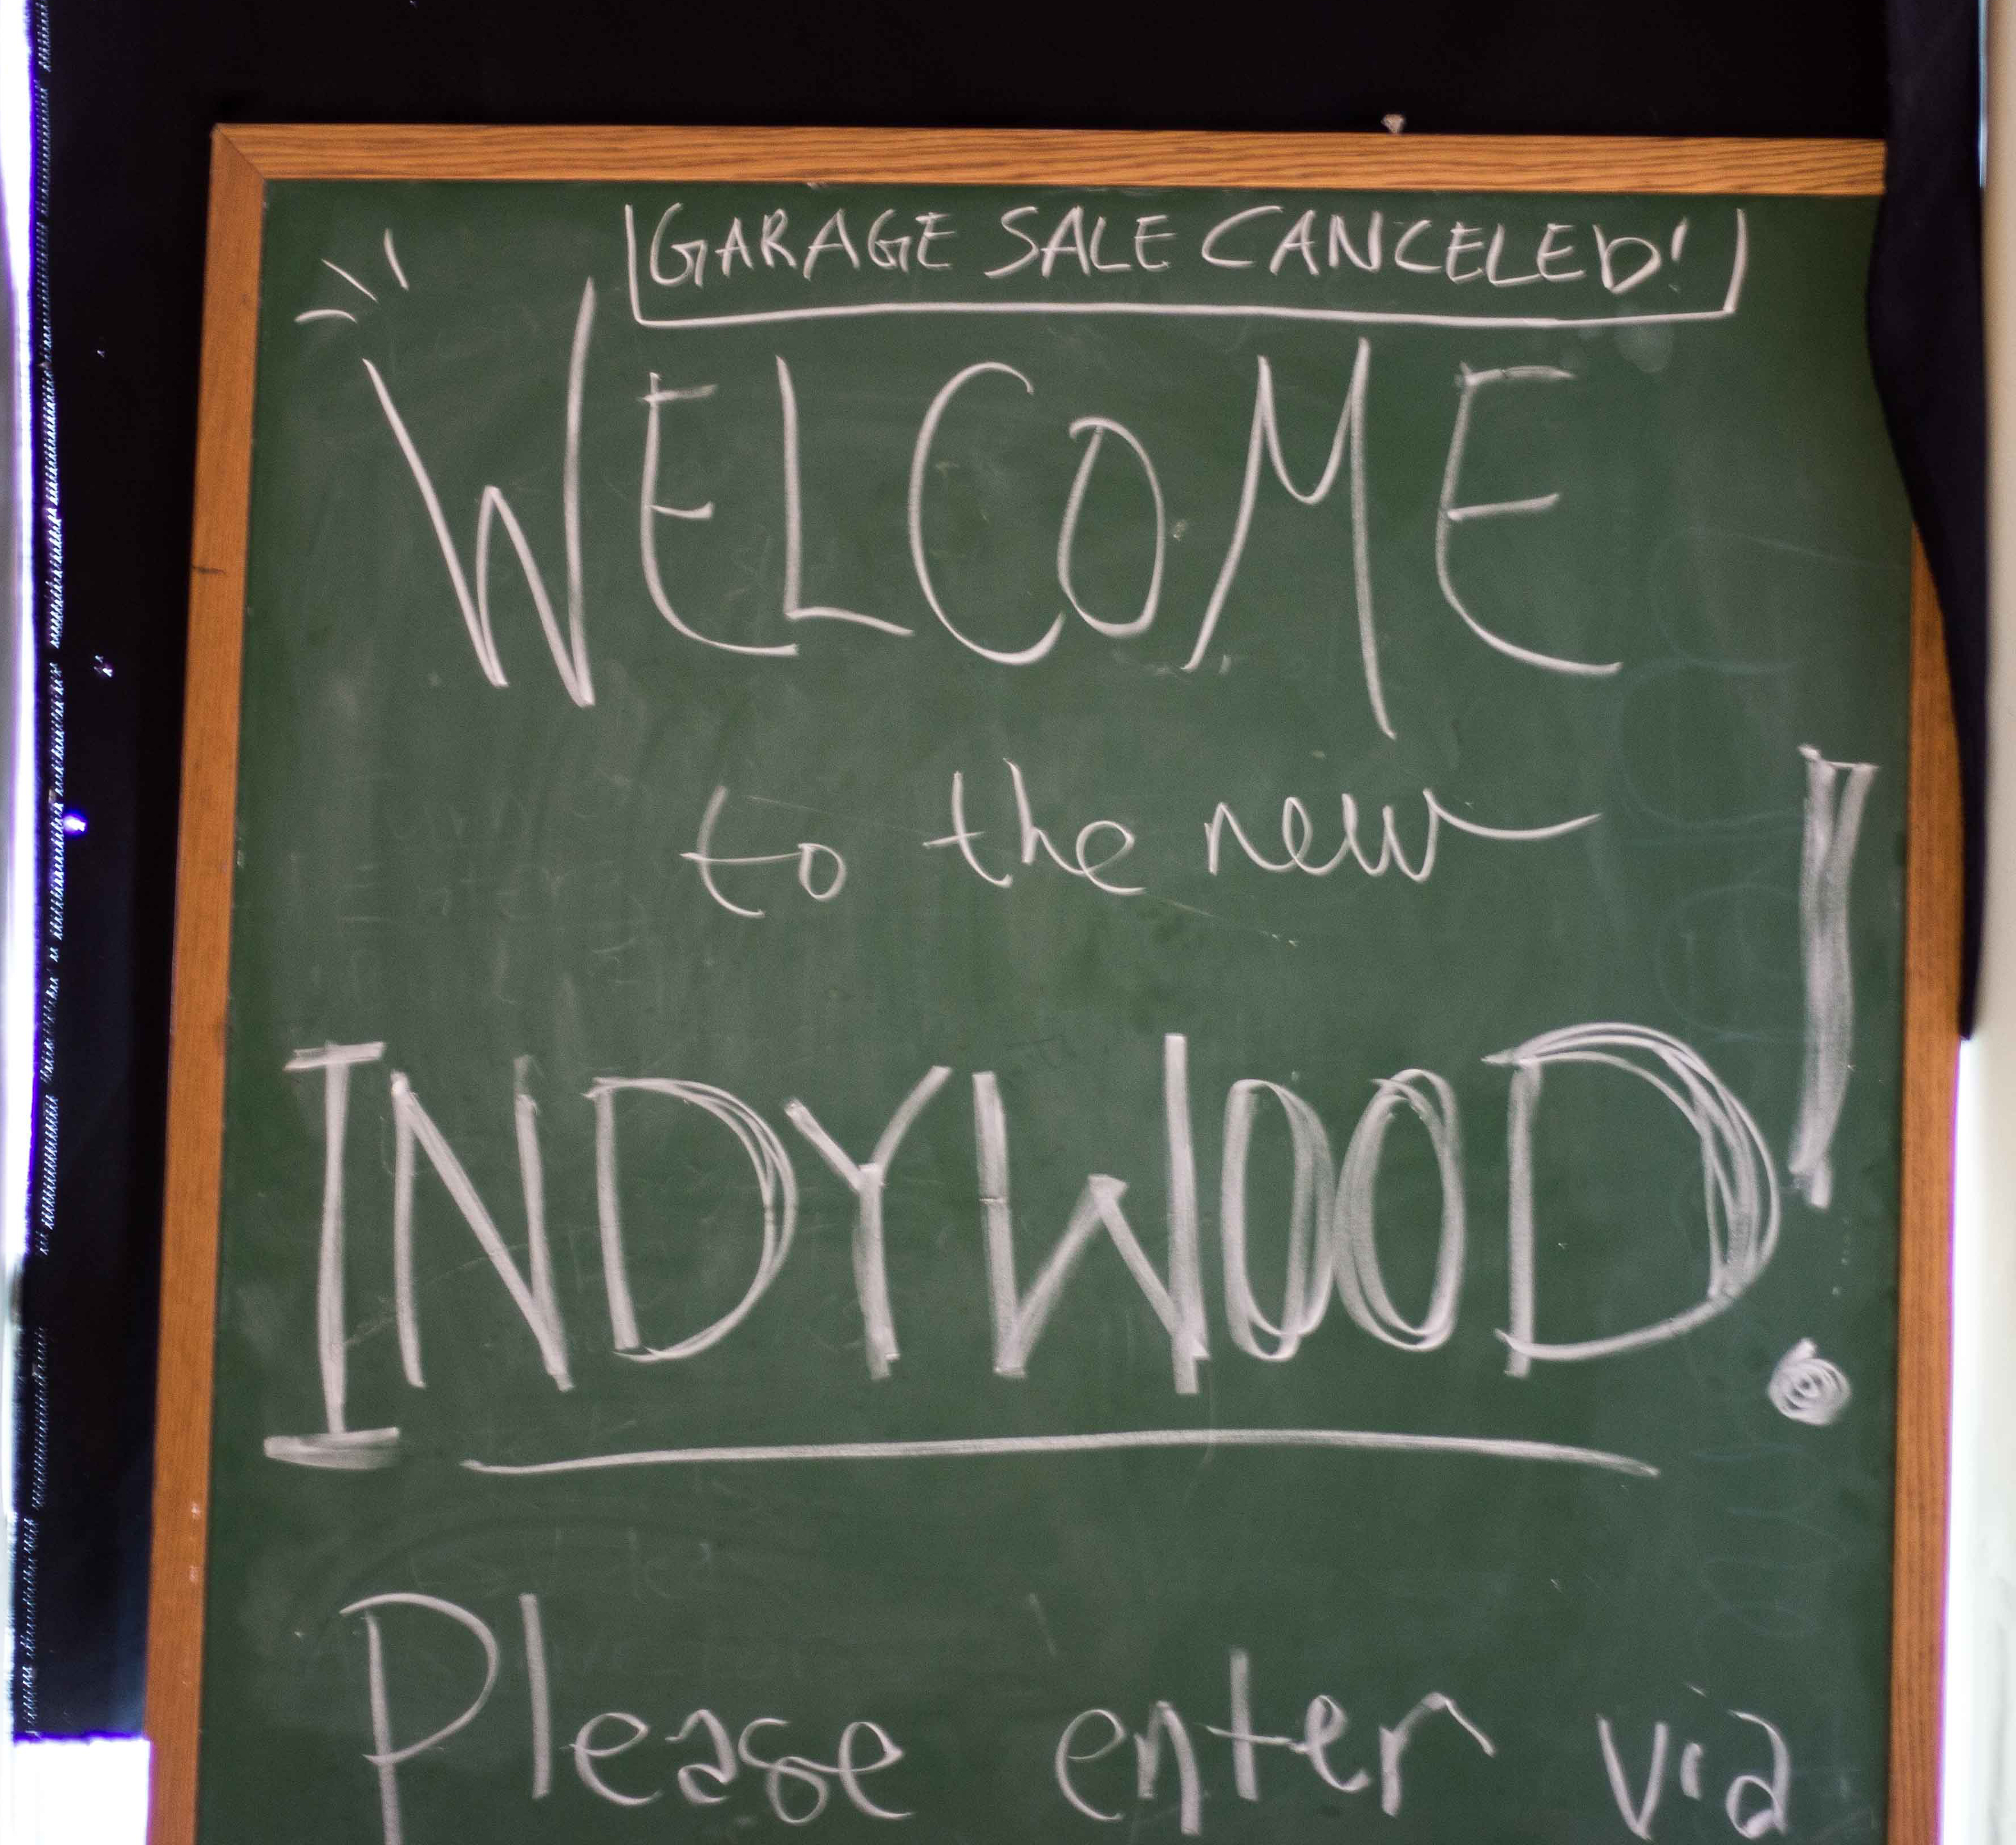 GARAGE SALE CANCELED!
WELCOME
to the new
INDYWOOD!
Please enter via